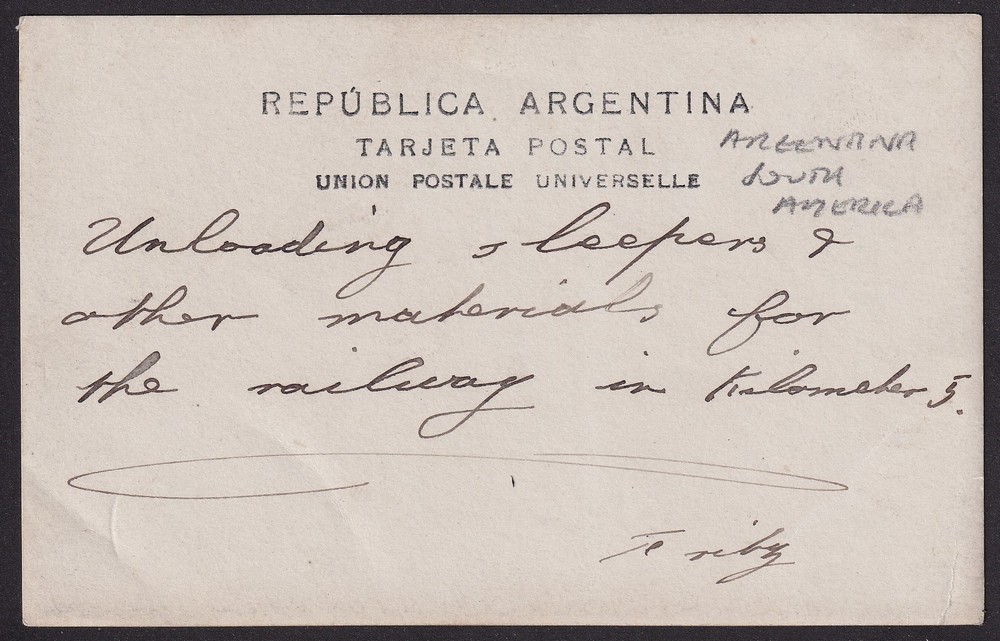 REPÚBLICA ARGENTINA
TARJETA POSTAL
UNION POSTALE UNIVERSELLE
ARGENTANA
SOUTH
AMERICA
Unloading sleepers &
other materials for
the railway in Kilometer 5.